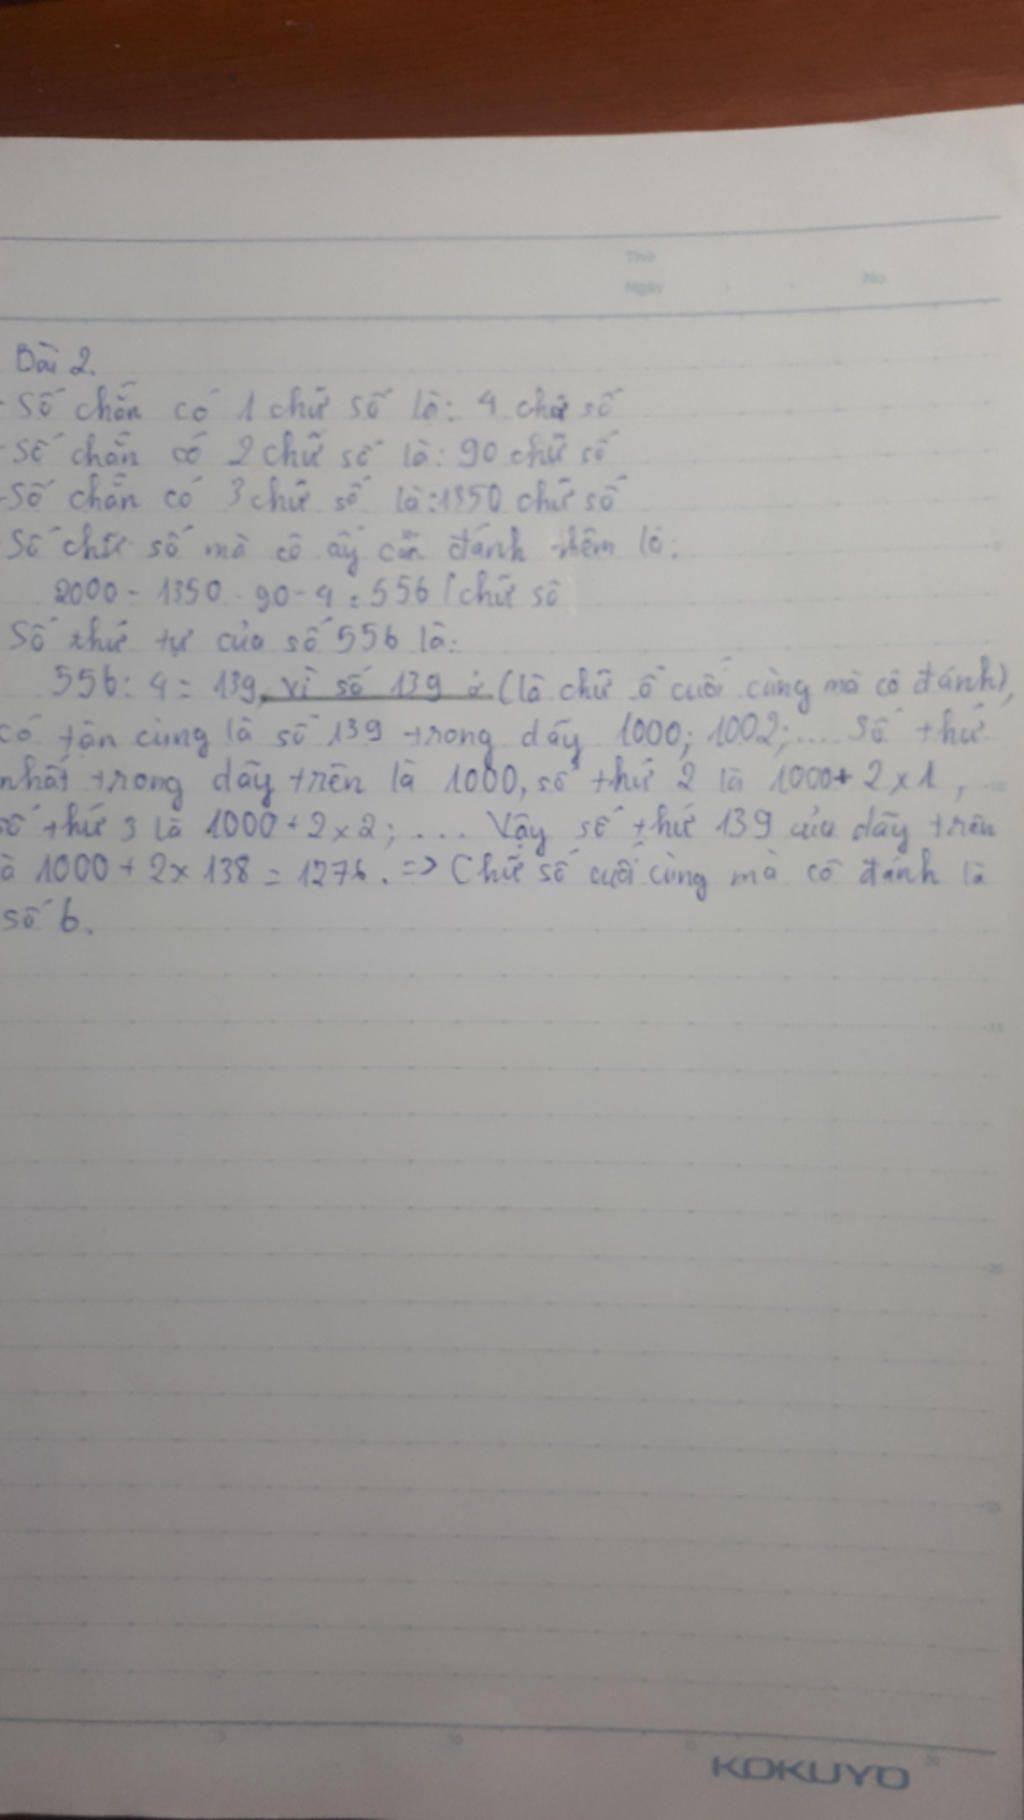 Thứ
Ngày . . No
Bài 2.
- Số chẵn có 1 chữ số là: 4 chữ số
- Số chẵn có 2 chữ số là: 90 chữ số
- Số chẵn có 3 chữ số là: 1350 chữ số
Số chữ số mà cô ấy cần đánh thêm là:
2000 - 1350 - 90 - 4 = 556 (chữ số
Số thứ tự của số 556 là:
556 : 4 = 139, vì số 139 (là chữ ố cuối cùng mà cô đánh),
có tận cùng là số 139 trong dãy 1000; 1002; ... Số thứ
nhất trong dãy trên là 1000, số thứ 2 là 1000 + 2 x 1,
số thứ 3 là 1000 + 2 x 2; .... Vậy số thứ 139 của dãy trên
à 1000 + 2 x 138 = 1276. => Chữ số cuối cùng mà cô đánh là
số 6.
KOKUYO